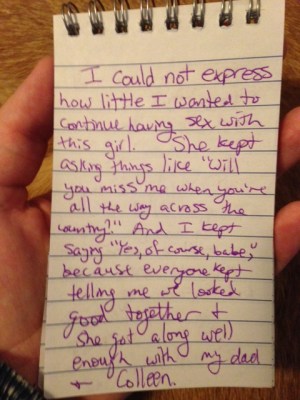 I could not express
how little I wanted to
continue having sex with
this girl. She kept
asking things like "Will
you miss me when you're
all the way across the
country?" And I kept
saying "Yes, of course, babe,"
because everyone kept
telling me we looked
good together +
she got along well
enough with my dad
+ Colleen.